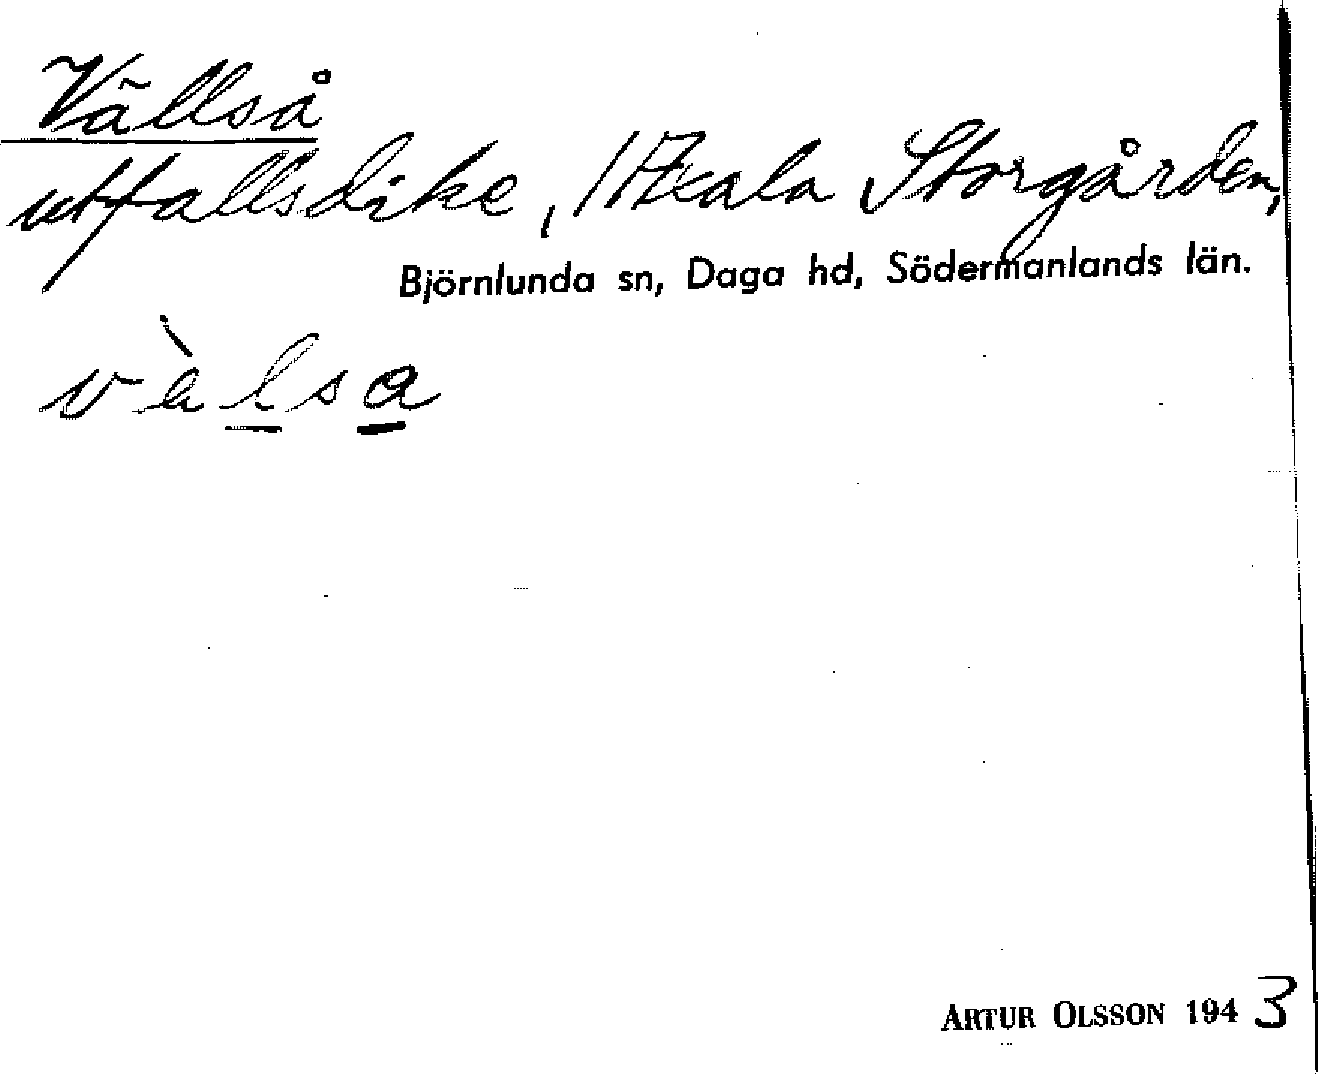 Vällså
utfallsdike, Skala Storgården,
Björnlunda sn, Daga hd, Södermanlands län.
vàlsa
ARTUR OLSSON 1943